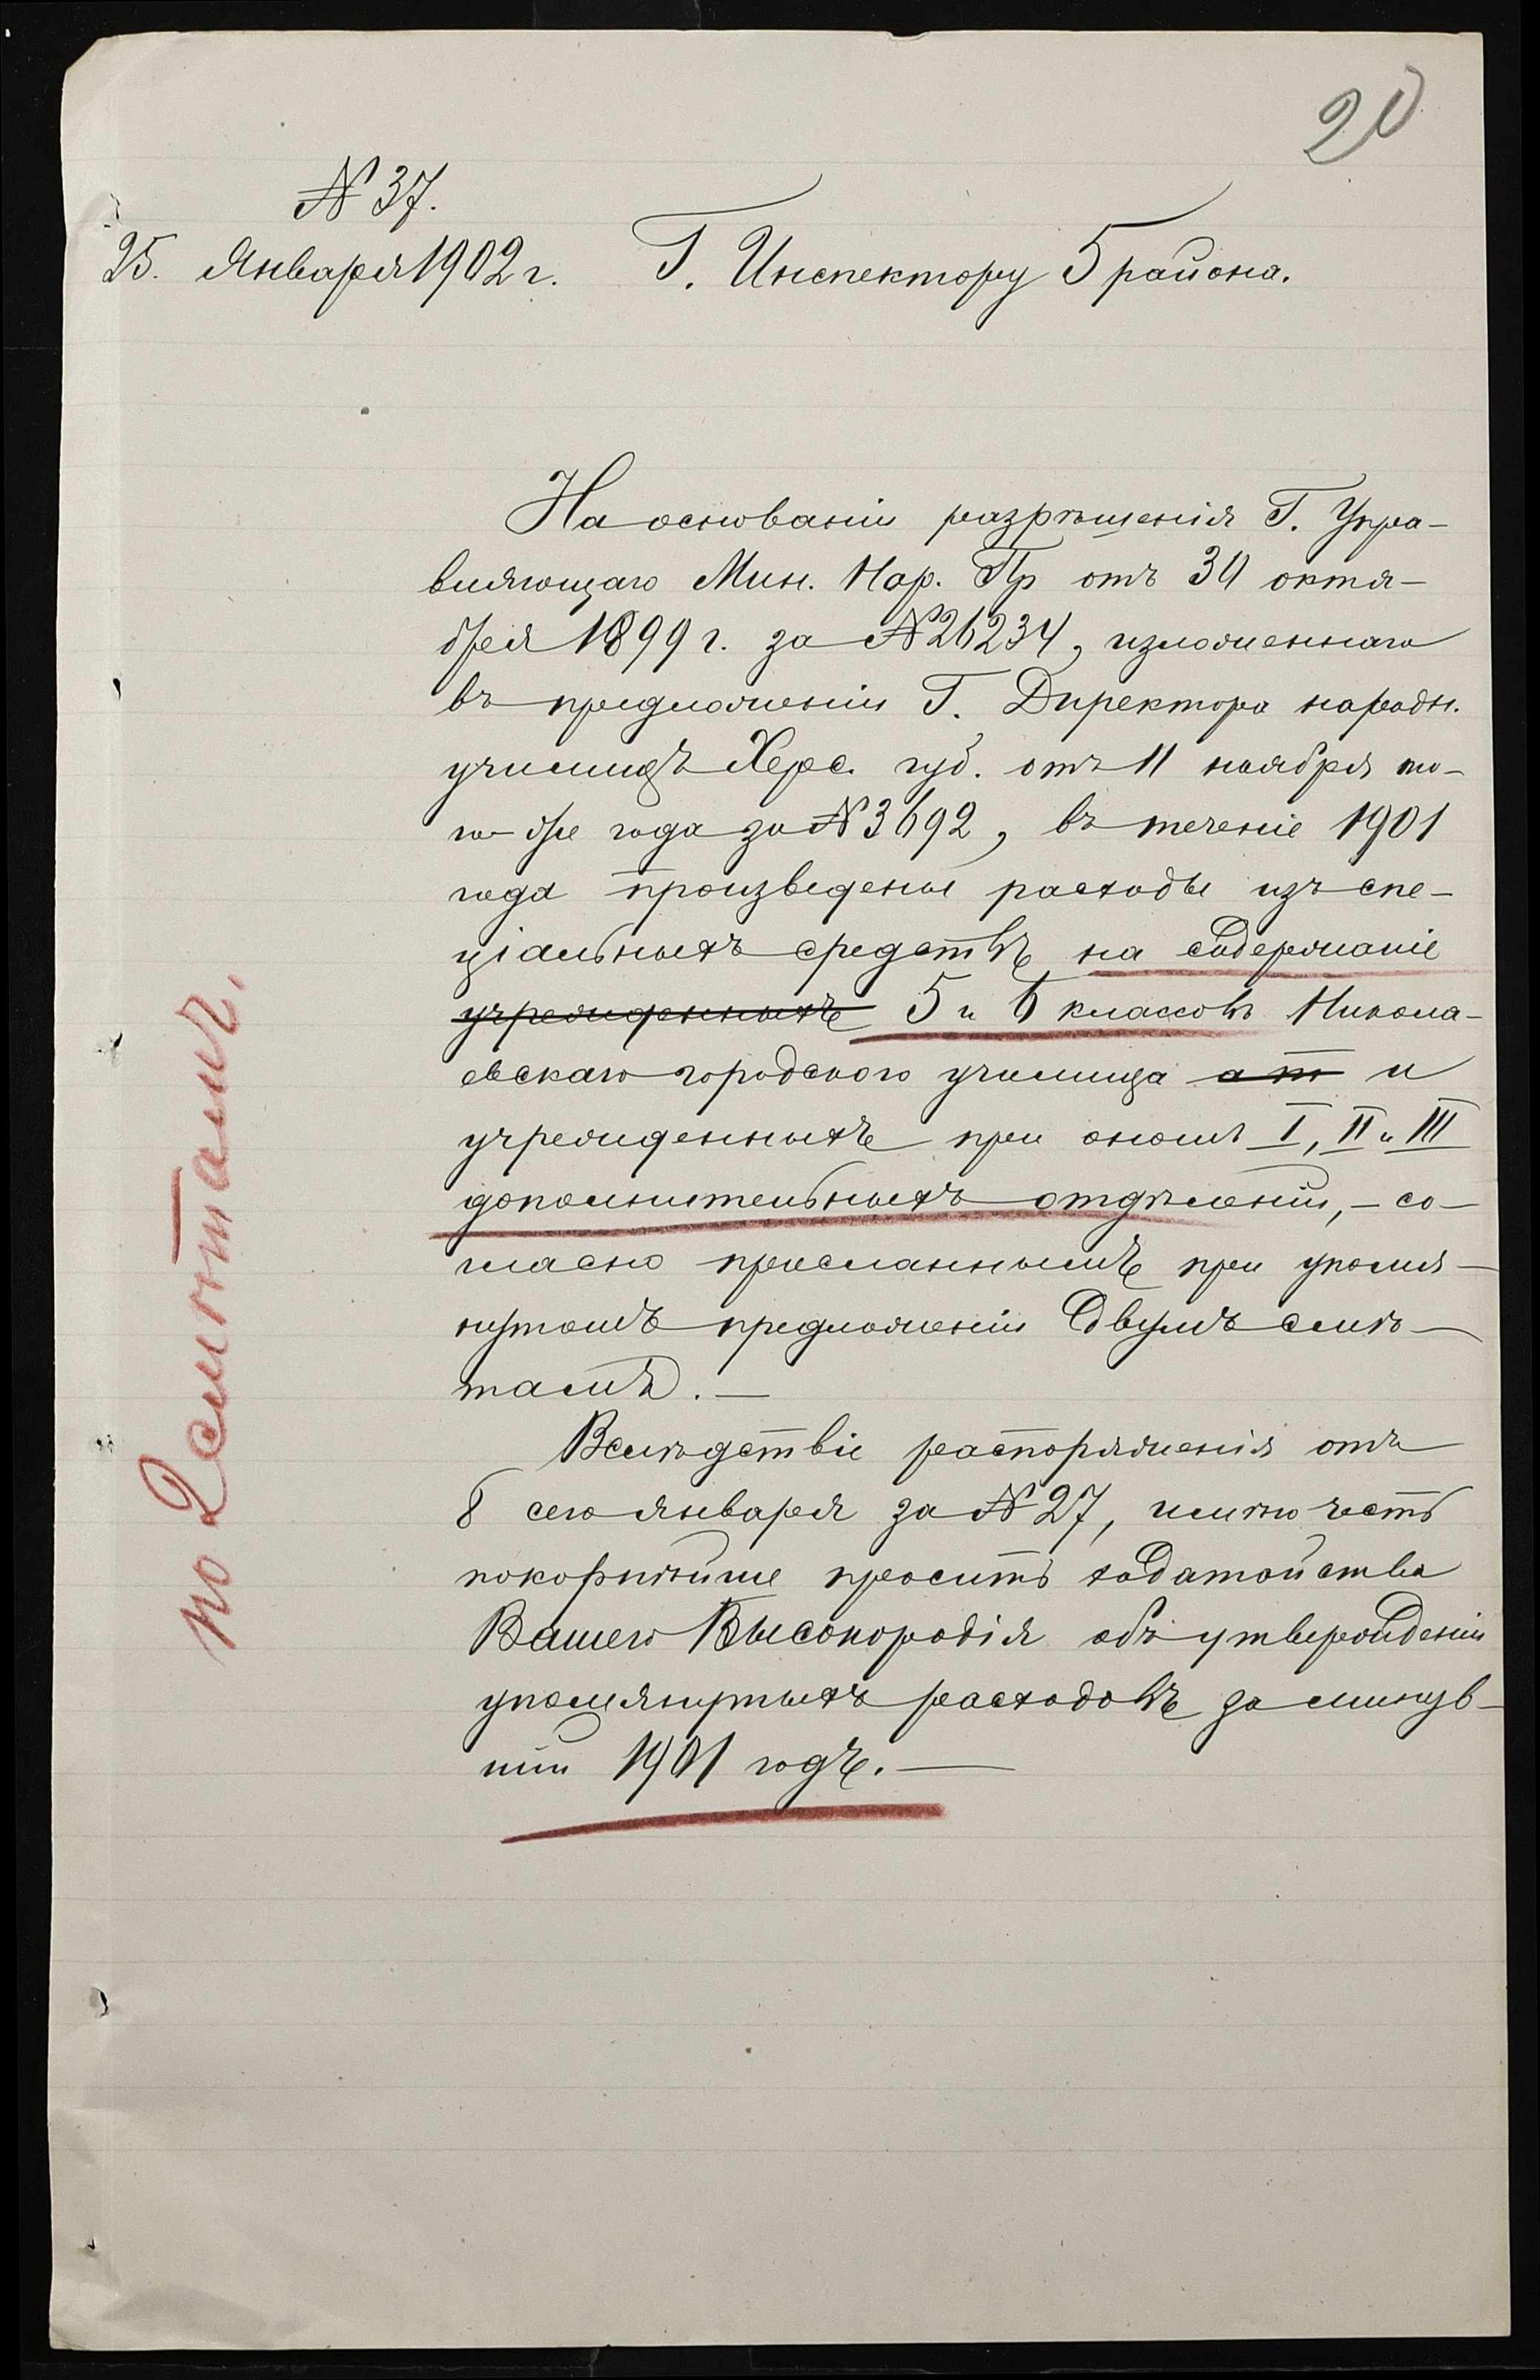 20
№ 37.
25. Января 1902 г.
Г. Инспектору 5 района.
На основаніи разрѣшенія Г. Упра-
вляющаго Мин. Нар. Пр отъ 30 октя-
бря 1899 г. за № 26234, изложеннаго
въ предложеніи Г. Директора народн.
училищъ Херс. губ. отъ 11 ноября то-
го-же года за № 3692, въ теченіе 1901
года произведены расходы изъ спе-
ціальныхъ средствъ на содержаніе
учрежденныхъ 5 и 6 классовъ Никола-
евскаго городского училища а т и
учрежденныхъ при ономъ I, II и III
дополнительныхъ отдѣленій, - со-
гласно присланнымъ при упомя-
нутомъ предложеніи двумъ смѣ-
тамъ. —
Вслѣдствіе распоряженія отъ
8 сего января за № 27, имѣю честь
покорнѣйше просить ходатайства
Вашего Высокородія объ утвержденіи
упомянутыхъ расходовъ за минув-
шій 1901 годъ. —
по 2 смѣтамъ.